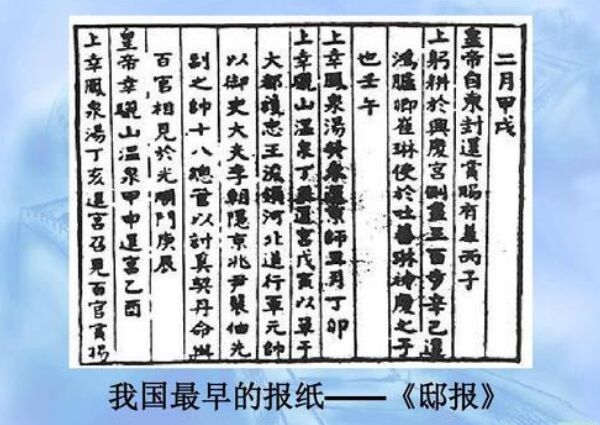 二月甲戌
皇帝自東封還賞賜有差丙子
上躬耕於興慶宮側盡三百步辛己還
鴻臚卿崔琳使於吐蕃琳神慶之子
也壬午
上幸鳳泉湯還京師月丁卯
上幸驪山温泉丁還宮戊寅以單于
大都護忠王浚領河北道行軍元帥
以御史大夫李朝隱京兆尹裴伷先
副之帥十八總管以討奚契丹命與
百官相見於光門庚辰
皇帝幸驪山温泉甲申還宮乙酉
上幸鳳泉湯丁亥還宮召見百官賞賜
我国最早的报纸——《邸报》